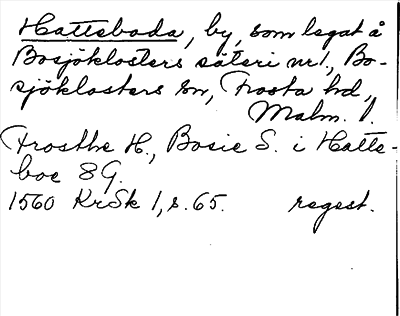 Hattsboda, by, som legat å
Bosjöklosters säteri nr 1, Bo-
sjöklosters sn, Frosta hd,
Malm. l.
Frosthe H., Bosie S. i Hatte-
boe 8 G.
1560 KrSk 1, s. 65. regest.